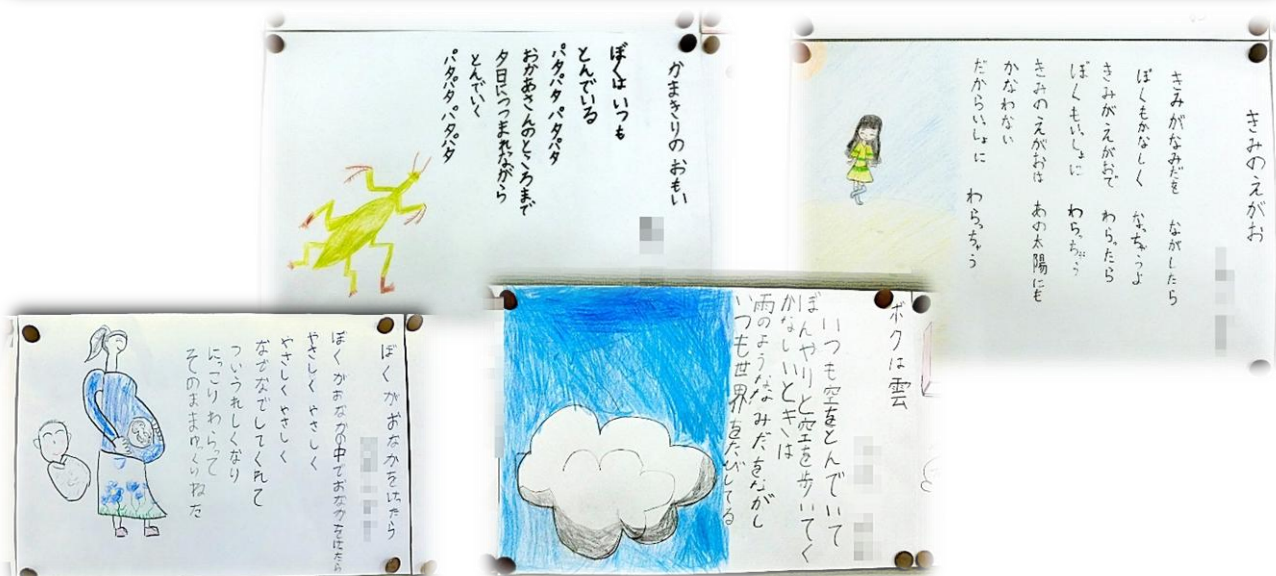 かまきりの おもい
ぼくは いつも
とんでいる
パタパタ パタパタ
おかあさんのところまで
夕日につつまれながら
とんでいく
パタパタ、パタパタ
きみのえがお
きみがなみだを ながしたら
ぼくもかなしく なっちゃうよ
きみがえがおで わらったら
ぼくもいっしょに わらっちゃう
きみのえがおは あの太陽にも
かなわない
だからいっしょに わらっちゃう
ぼくがおなかをけったら
ぼくがおなかの中でおなかをけったら
やさしく やさしく
やさしく やさしく
なでなでしてくれて
ついうれしくなり
にっこりわらって
そのままゆっくりねた
ボクは雲
いつも空をとんでいて
ぼんやりと空を歩いてく
かなしいときは
雨のようななみだをながし
いつも世界をたびしてる